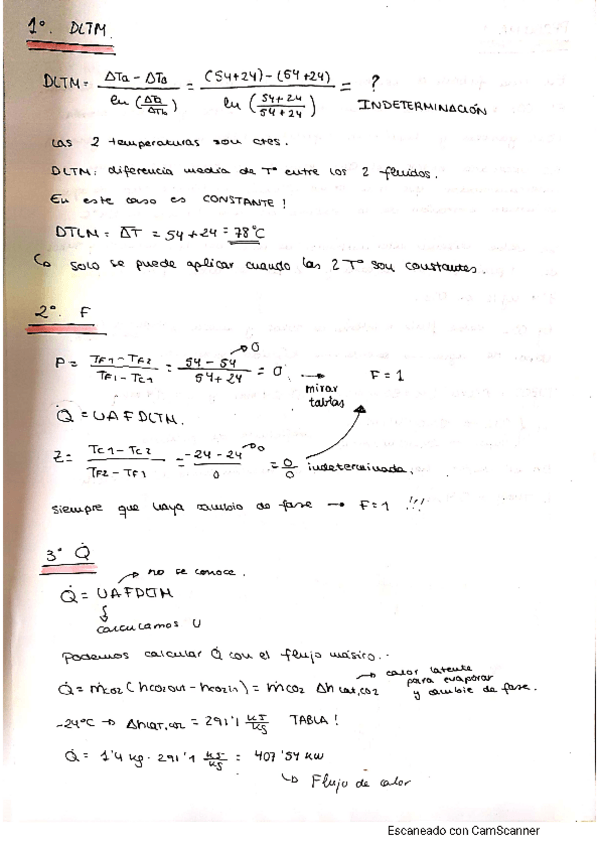 1º. DLTM
DLTM = ΔTa - ΔTb / ln (ΔTa/ΔTb) = (54+24) - (54+24) / ln (54+24/54+24) = ? INDETERMINACIÓN
Las 2 temperaturas son ctes.
DLTM: diferencia media de Tº entre los 2 fluidos.
En este caso es CONSTANTE!
DTLM = ΔT = 54 + 24 = 78ºC
↳ solo se puede aplicar cuando las 2 Tº son constantes.
2º. F
P = TF1 - TF2 / TF1 - TC1 = 54 - 54 / 54 + 24 → 0 = 0. → mirar tablas F = 1
Q̇ = UAFDLTM.
Z = TC1 - TC2 / TF2 - TF1 = -24 - 24 / 0 → 0 = 0/0 indeterminada.
siempre que haya cambio de fase → F = 1 !!!
3º Q̇
→ no se conoce.
Q̇ = UAFDLTM
calculamos U
Podemos calcular Q̇ con el flujo másico.
Q̇ = ṁco2 (hco2out - hco2in) = ṁco2 Δhlat,co2 → calor latente para evaporar y cambie de fase.
-24ºC → ΔhLAT,co2 = 291'1 kJ/kg TABLA!
Q̇ = 1'4 kg · 291'1 kJ/kg = 407'54 kW
↳ Flujo de calor
Escaneado con CamScanner